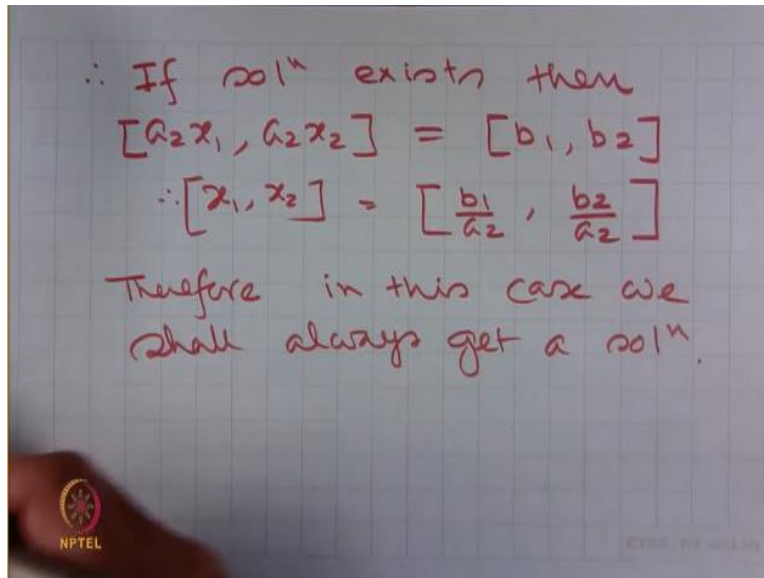 ∴ If solⁿ exists then
[a₂x₁, a₂x₂] = [b₁, b₂]
∴ [x₁, x₂] = [b₁/a₂, b₂/a₂]
Therefore in this case we
shall always get a solⁿ.
NPTEL